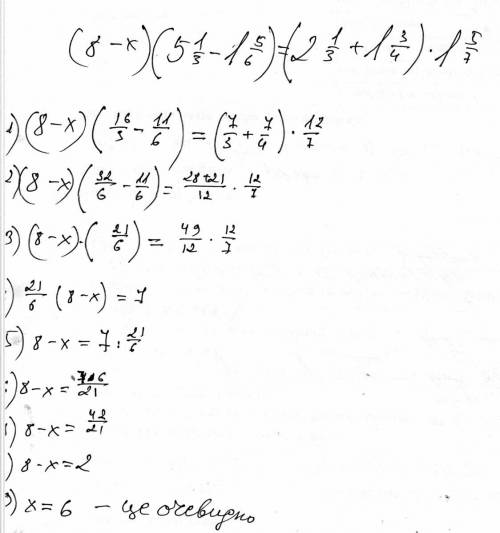 (8-x)(5 1/3 - 1 5/6) = (2 1/3 + 1 3/4) · 1 5/7
1) (8-x)(16/3 - 11/6) = (7/3 + 7/4) · 12/7
2) (8-x)(32/6 - 11/6) = 28+21/12 · 12/7
3) (8-x)·(21/6) = 49/12 · 12/7
) 21/6 (8-x) = 7
5) 8-x = 7 : 21/6
) 8-x = 7·6/21
) 8-x = 42/21
) 8-x = 2
9) x = 6 - це очевидно